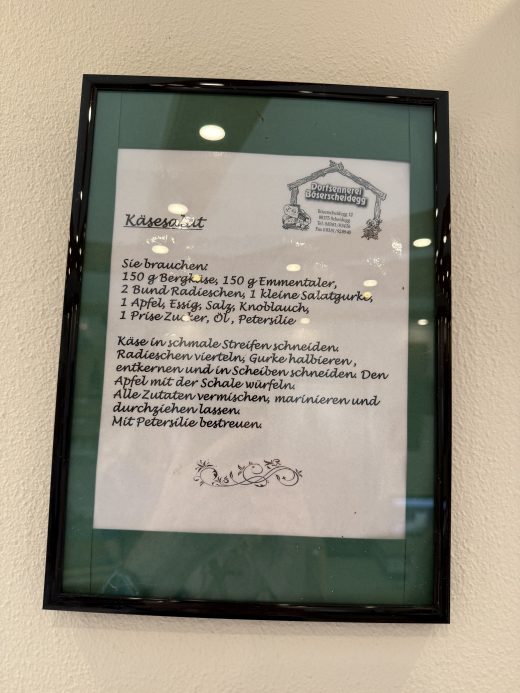 Dorfsennerei
Böserscheidegg
Böserscheidegg 12
88175 Scheidegg
Käsesalat
Sie brauchen:
150 g Bergkäse, 150 g Emmentaler,
2 Bund Radieschen, 1 kleine Salatgurke,
1 Apfel, Essig, Salz, Knoblauch,
1 Prise Zucker, Öl, Petersilie
Käse in schmale Streifen schneiden.
Radieschen vierteln, Gurke halbieren,
entkernen und in Scheiben schneiden. Den
Apfel mit der Schale würfeln.
Alle Zutaten vermischen, marinieren und
durchziehen lassen.
Mit Petersilie bestreuen.